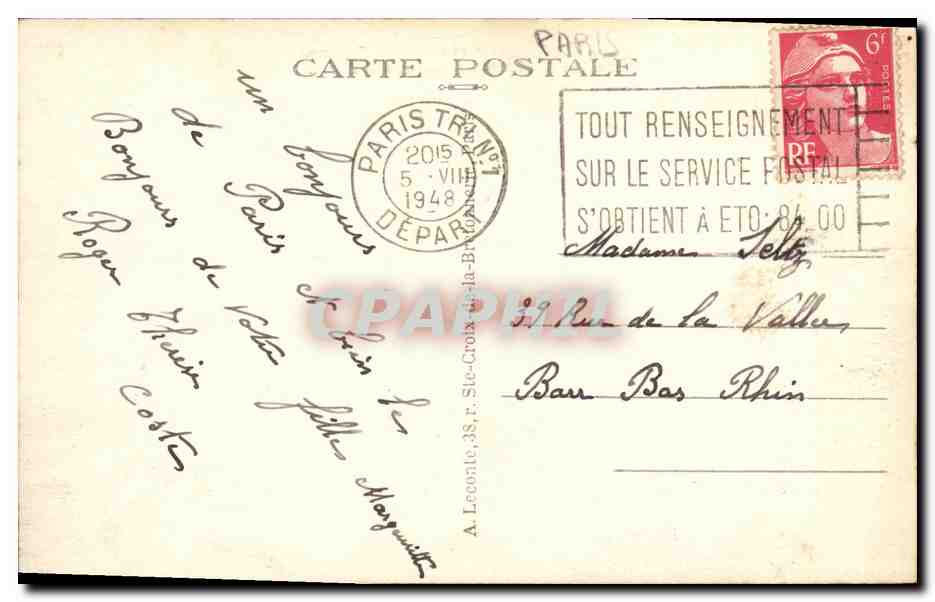 PARIS
CARTE POSTALE
PARIS TRI N°1
2015
5 VIII
1948
DÉPART
TOUT RENSEIGNEMENT
SUR LE SERVICE POSTAL
S'OBTIENT À ETO: 84_00
6F
POSTES
RF
un bonjour
de Paris
Bonjours de Votre fille Margueritte
Roger Therese
Costes
Madame Seltz
39 Rue de la Vallee
Barr Bas Rhin
A. Leconte, 38, r. Ste-Croix-de-la-Bretonnerie, Paris
CPAPHIL